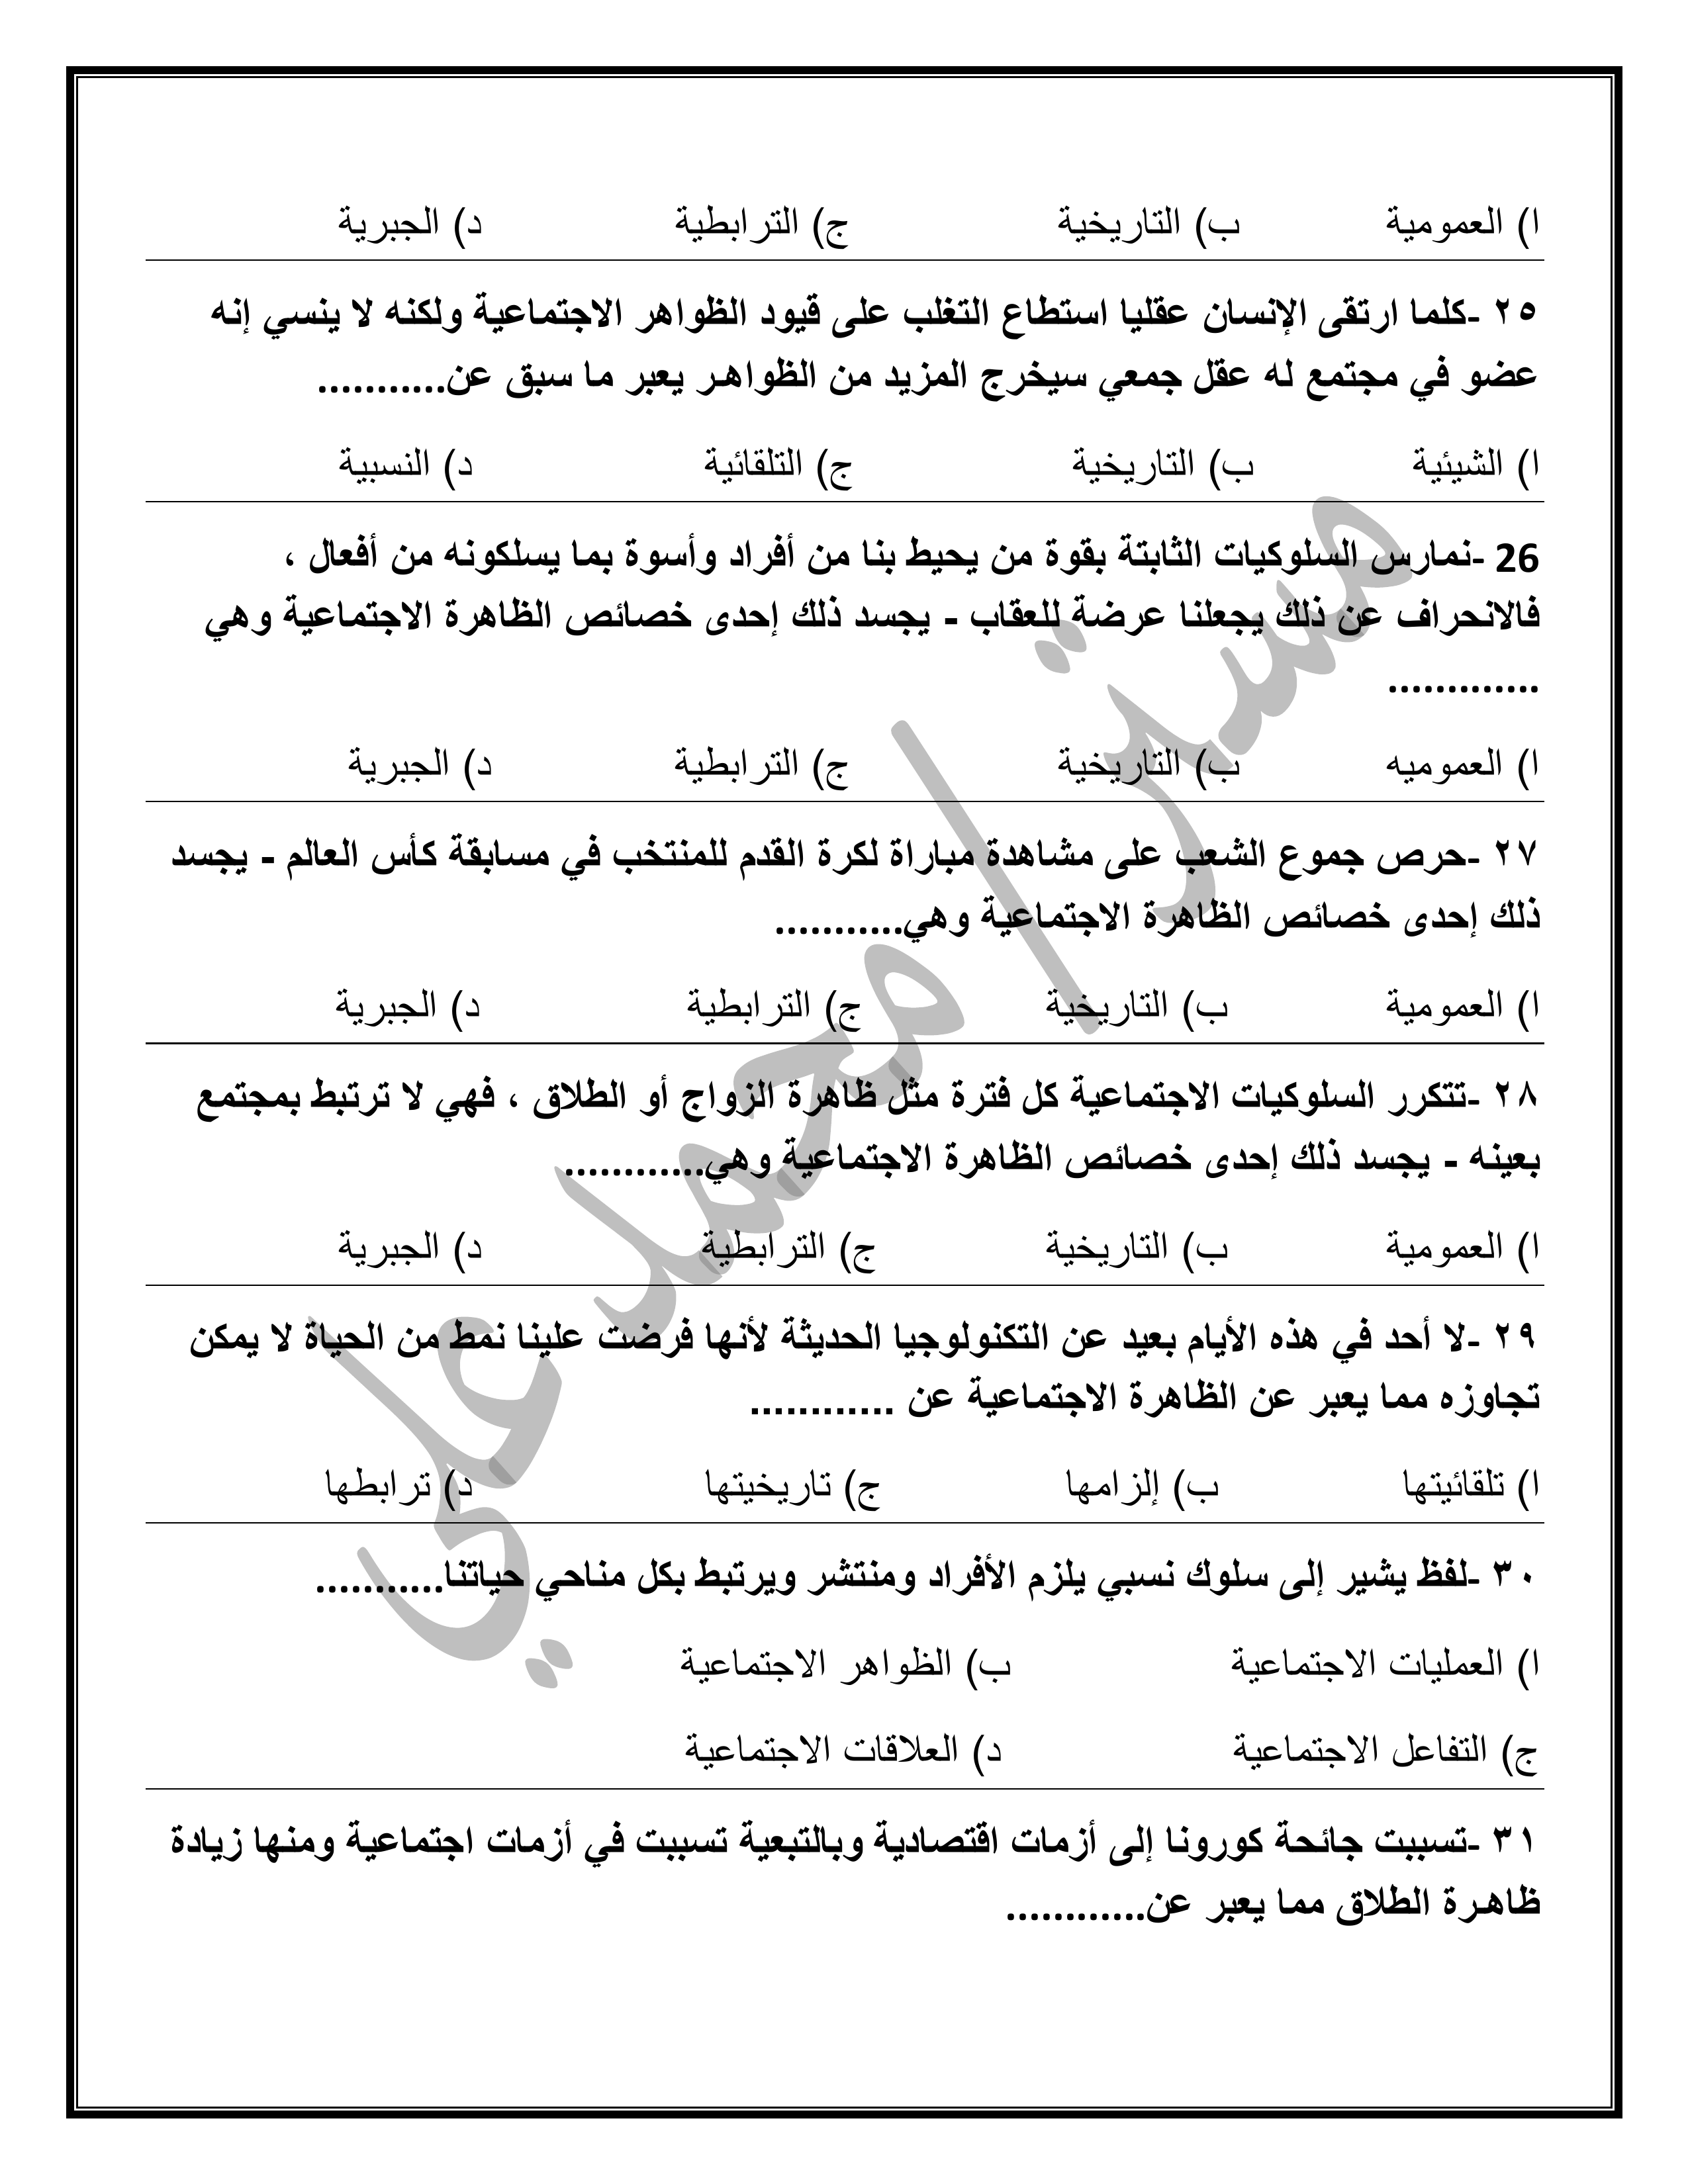 ا) العمومية ب) التاريخية ج) الترابطية د) الجبرية
٢٥ -كلما ارتقى الإنسان عقليا استطاع التغلب على قيود الظواهر الاجتماعية ولكنه لا ينسي إنه
عضو في مجتمع له عقل جمعي سيخرج المزيد من الظواهر يعبر ما سبق عن...........
ا) الشيئية ب) التاريخية ج) التلقائية د) النسبية
26 -نمارس السلوكيات الثابتة بقوة من يحيط بنا من أفراد وأسوة بما يسلكونه من أفعال ،
فالانحراف عن ذلك يجعلنا عرضة للعقاب - يجسد ذلك إحدى خصائص الظاهرة الاجتماعية وهي
.............
ا) العموميه ب) التاريخية ج) الترابطية د) الجبرية
٢٧ -حرص جموع الشعب على مشاهدة مباراة لكرة القدم للمنتخب في مسابقة كأس العالم - يجسد
ذلك إحدى خصائص الظاهرة الاجتماعية وهي...........
ا) العمومية ب) التاريخية ج) الترابطية د) الجبرية
٢٨ -تتكرر السلوكيات الاجتماعية كل فترة مثل ظاهرة الزواج أو الطلاق ، فهي لا ترتبط بمجتمع
بعينه - يجسد ذلك إحدى خصائص الظاهرة الاجتماعية وهي............
ا) العمومية ب) التاريخية ج) الترابطية د) الجبرية
٢٩ -لا أحد في هذه الأيام بعيد عن التكنولوجيا الحديثة لأنها فرضت علينا نمط من الحياة لا يمكن
تجاوزه مما يعبر عن الظاهرة الاجتماعية عن ............
ا) تلقائيتها ب) إلزامها ج) تاريخيتها د) ترابطها
٣٠ -لفظ يشير إلى سلوك نسبي يلزم الأفراد ومنتشر ويرتبط بكل مناحي حياتنا...........
ا) العمليات الاجتماعية ب) الظواهر الاجتماعية
ج) التفاعل الاجتماعية د) العلاقات الاجتماعية
٣١ -تسببت جائحة كورونا إلى أزمات اقتصادية وبالتبعية تسببت في أزمات اجتماعية ومنها زيادة
ظاهرة الطلاق مما يعبر عن............
مستر/ محمد علي